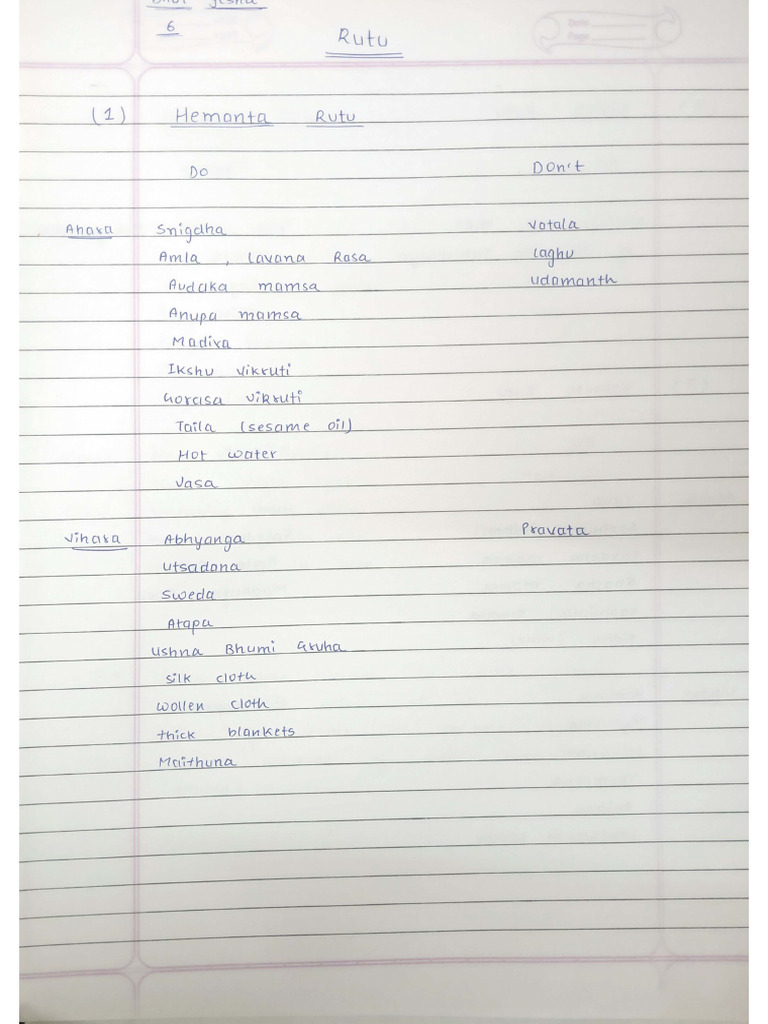 6
Rutu
(1) Hemanta Rutu
Do Don't
Ahara Snigdha Vatala
Amla , Lavana Rasa Laghu
Audaka mamsa Udamanth
Anupa mamsa
Madira
Ikshu Vikruti
Gorasa Vikruti
Taila (sesame oil)
Hot water
Vasa
Vihara Abhyanga Pravata
Utsadana
Sweda
Atapa
Ushna Bhumi Gruha
Silk cloth
Wollen cloth
thick blankets
Maithuna